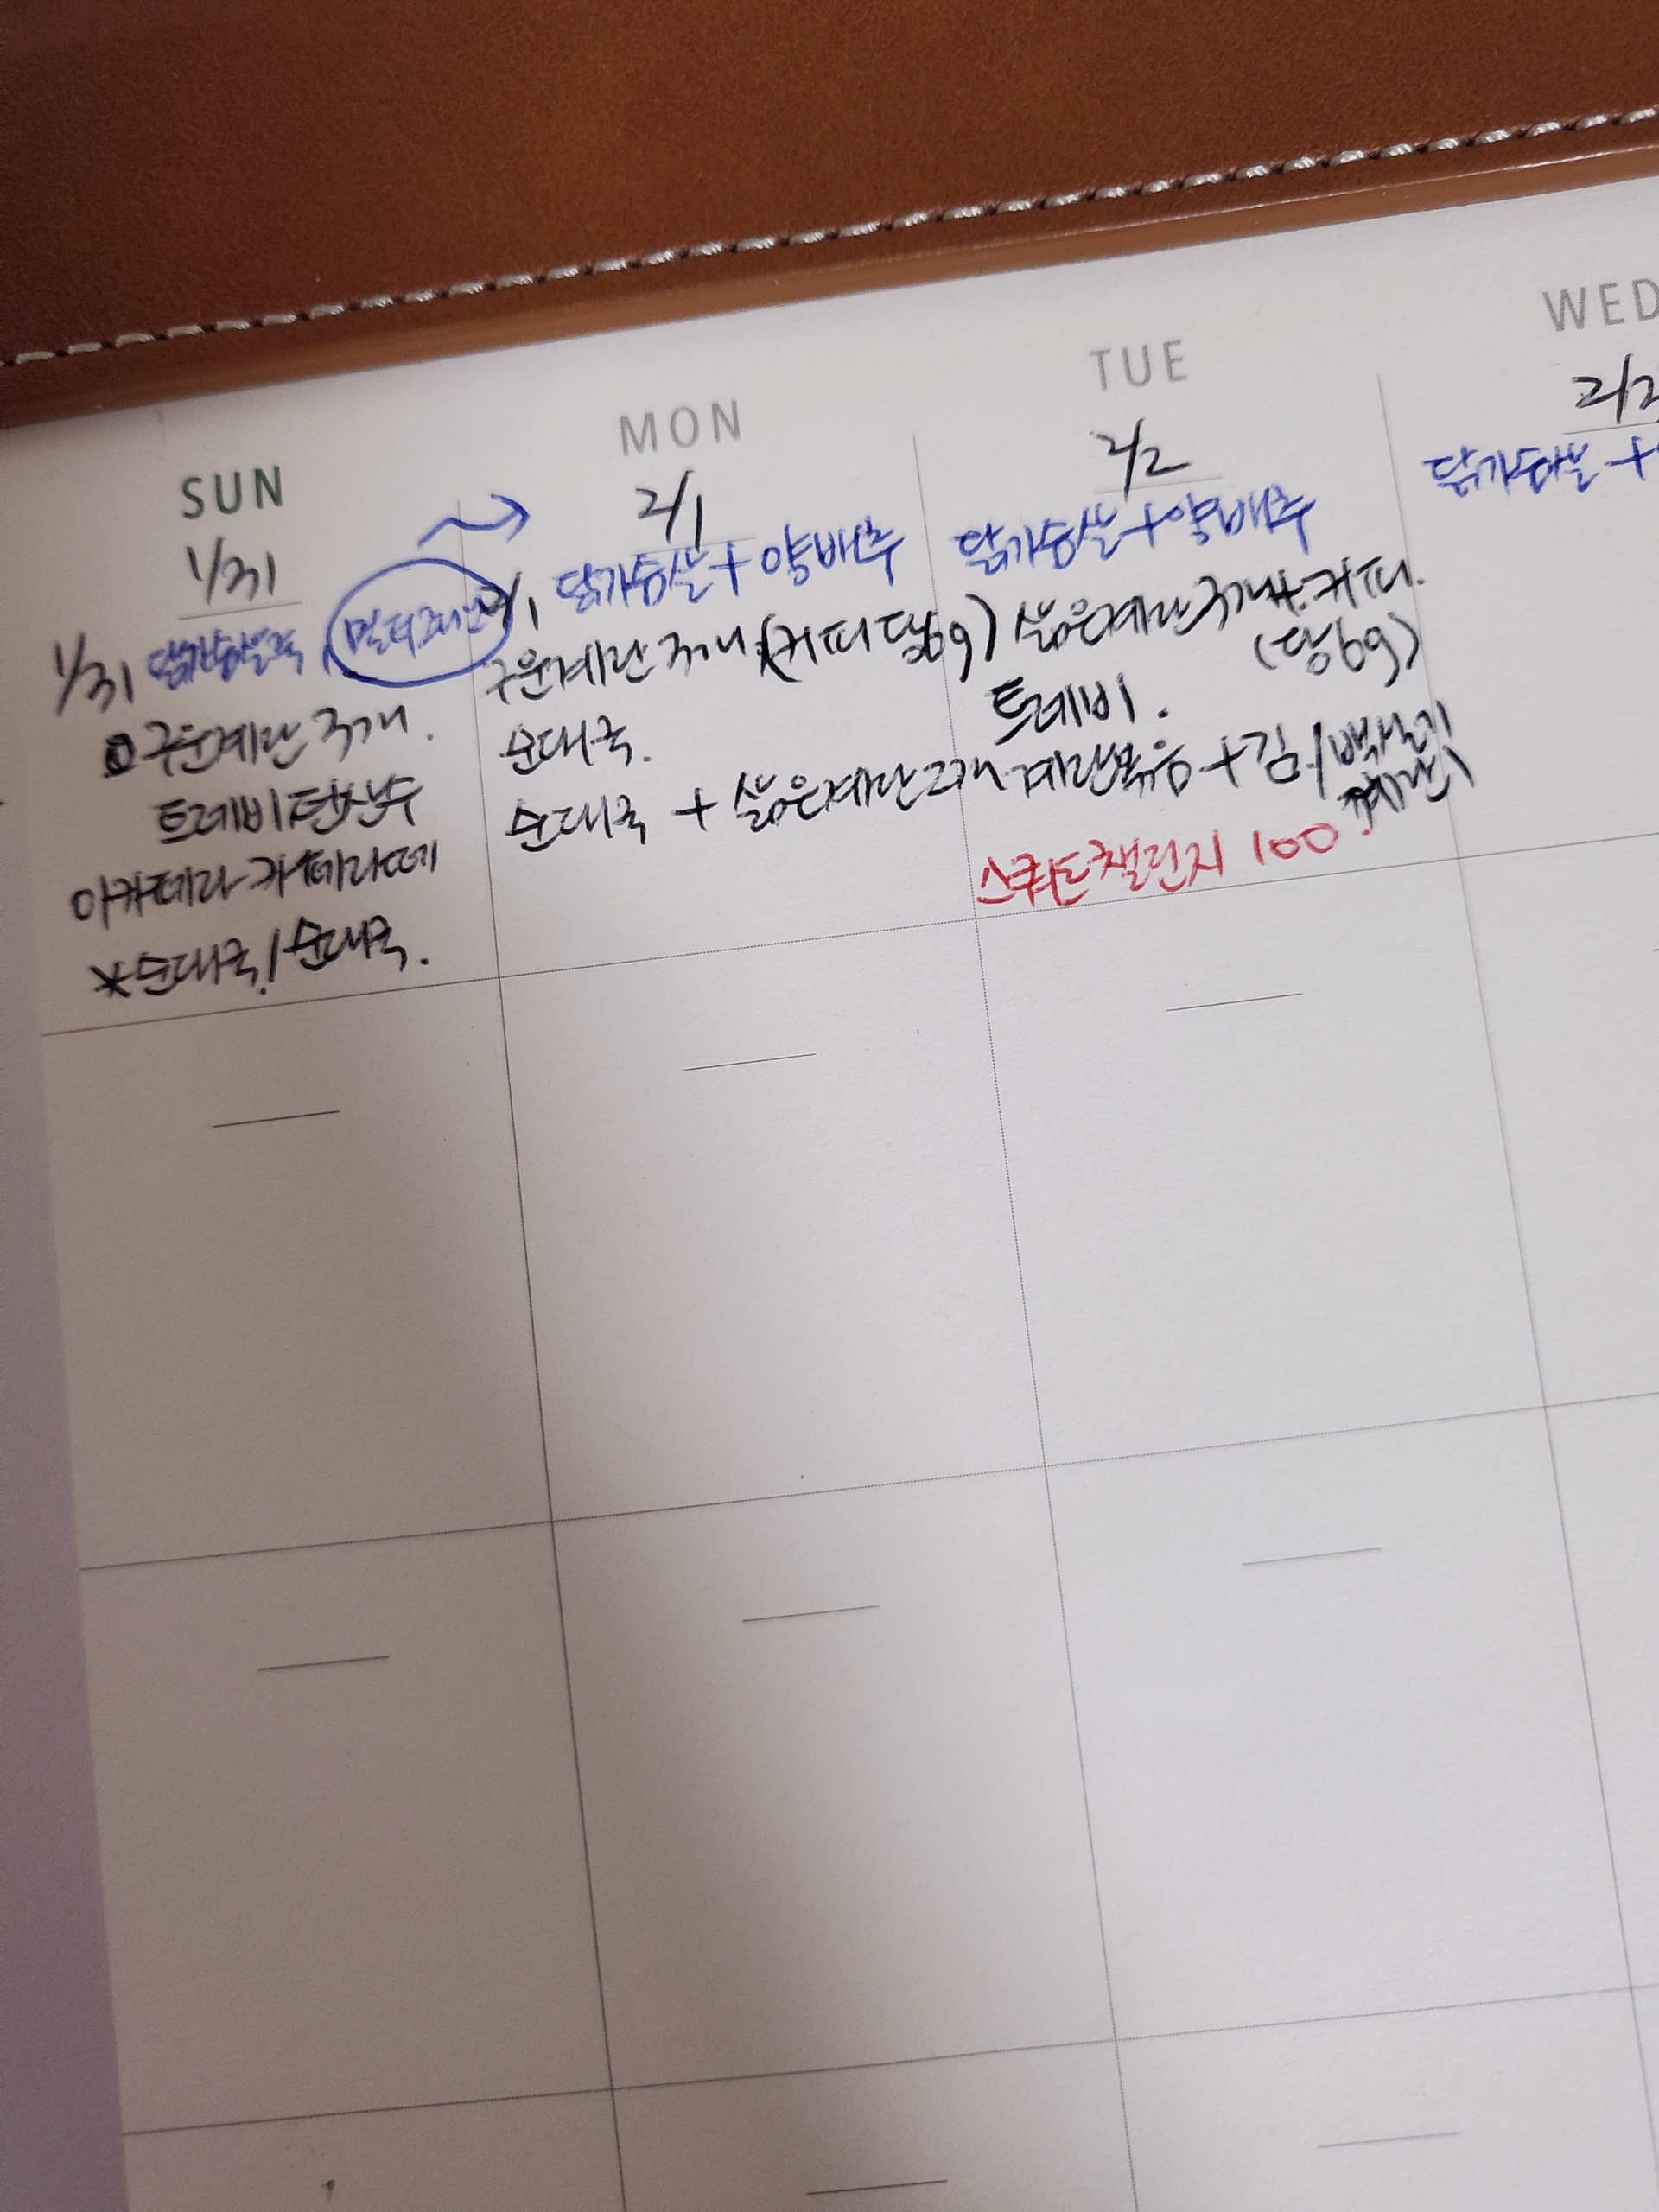 SUN
1/31
1/31 닭가슴살죽
구운계란 3개.
트레비탄산수
아카페라 카페라떼
*순대국/순대국.
MON
2/1
2/1 닭가슴살+양배추
구운계란 3개.(커피 당6g)
순대국.
순대국 + 삶은계란 2개
TUE
2/2
닭가슴살+양배추
삶은계란 3개+커피.
(당6g)
트레비.
계란볶음+김/백설기
계란1
스쿼트챌린지 100.
WED
닭가슴살+